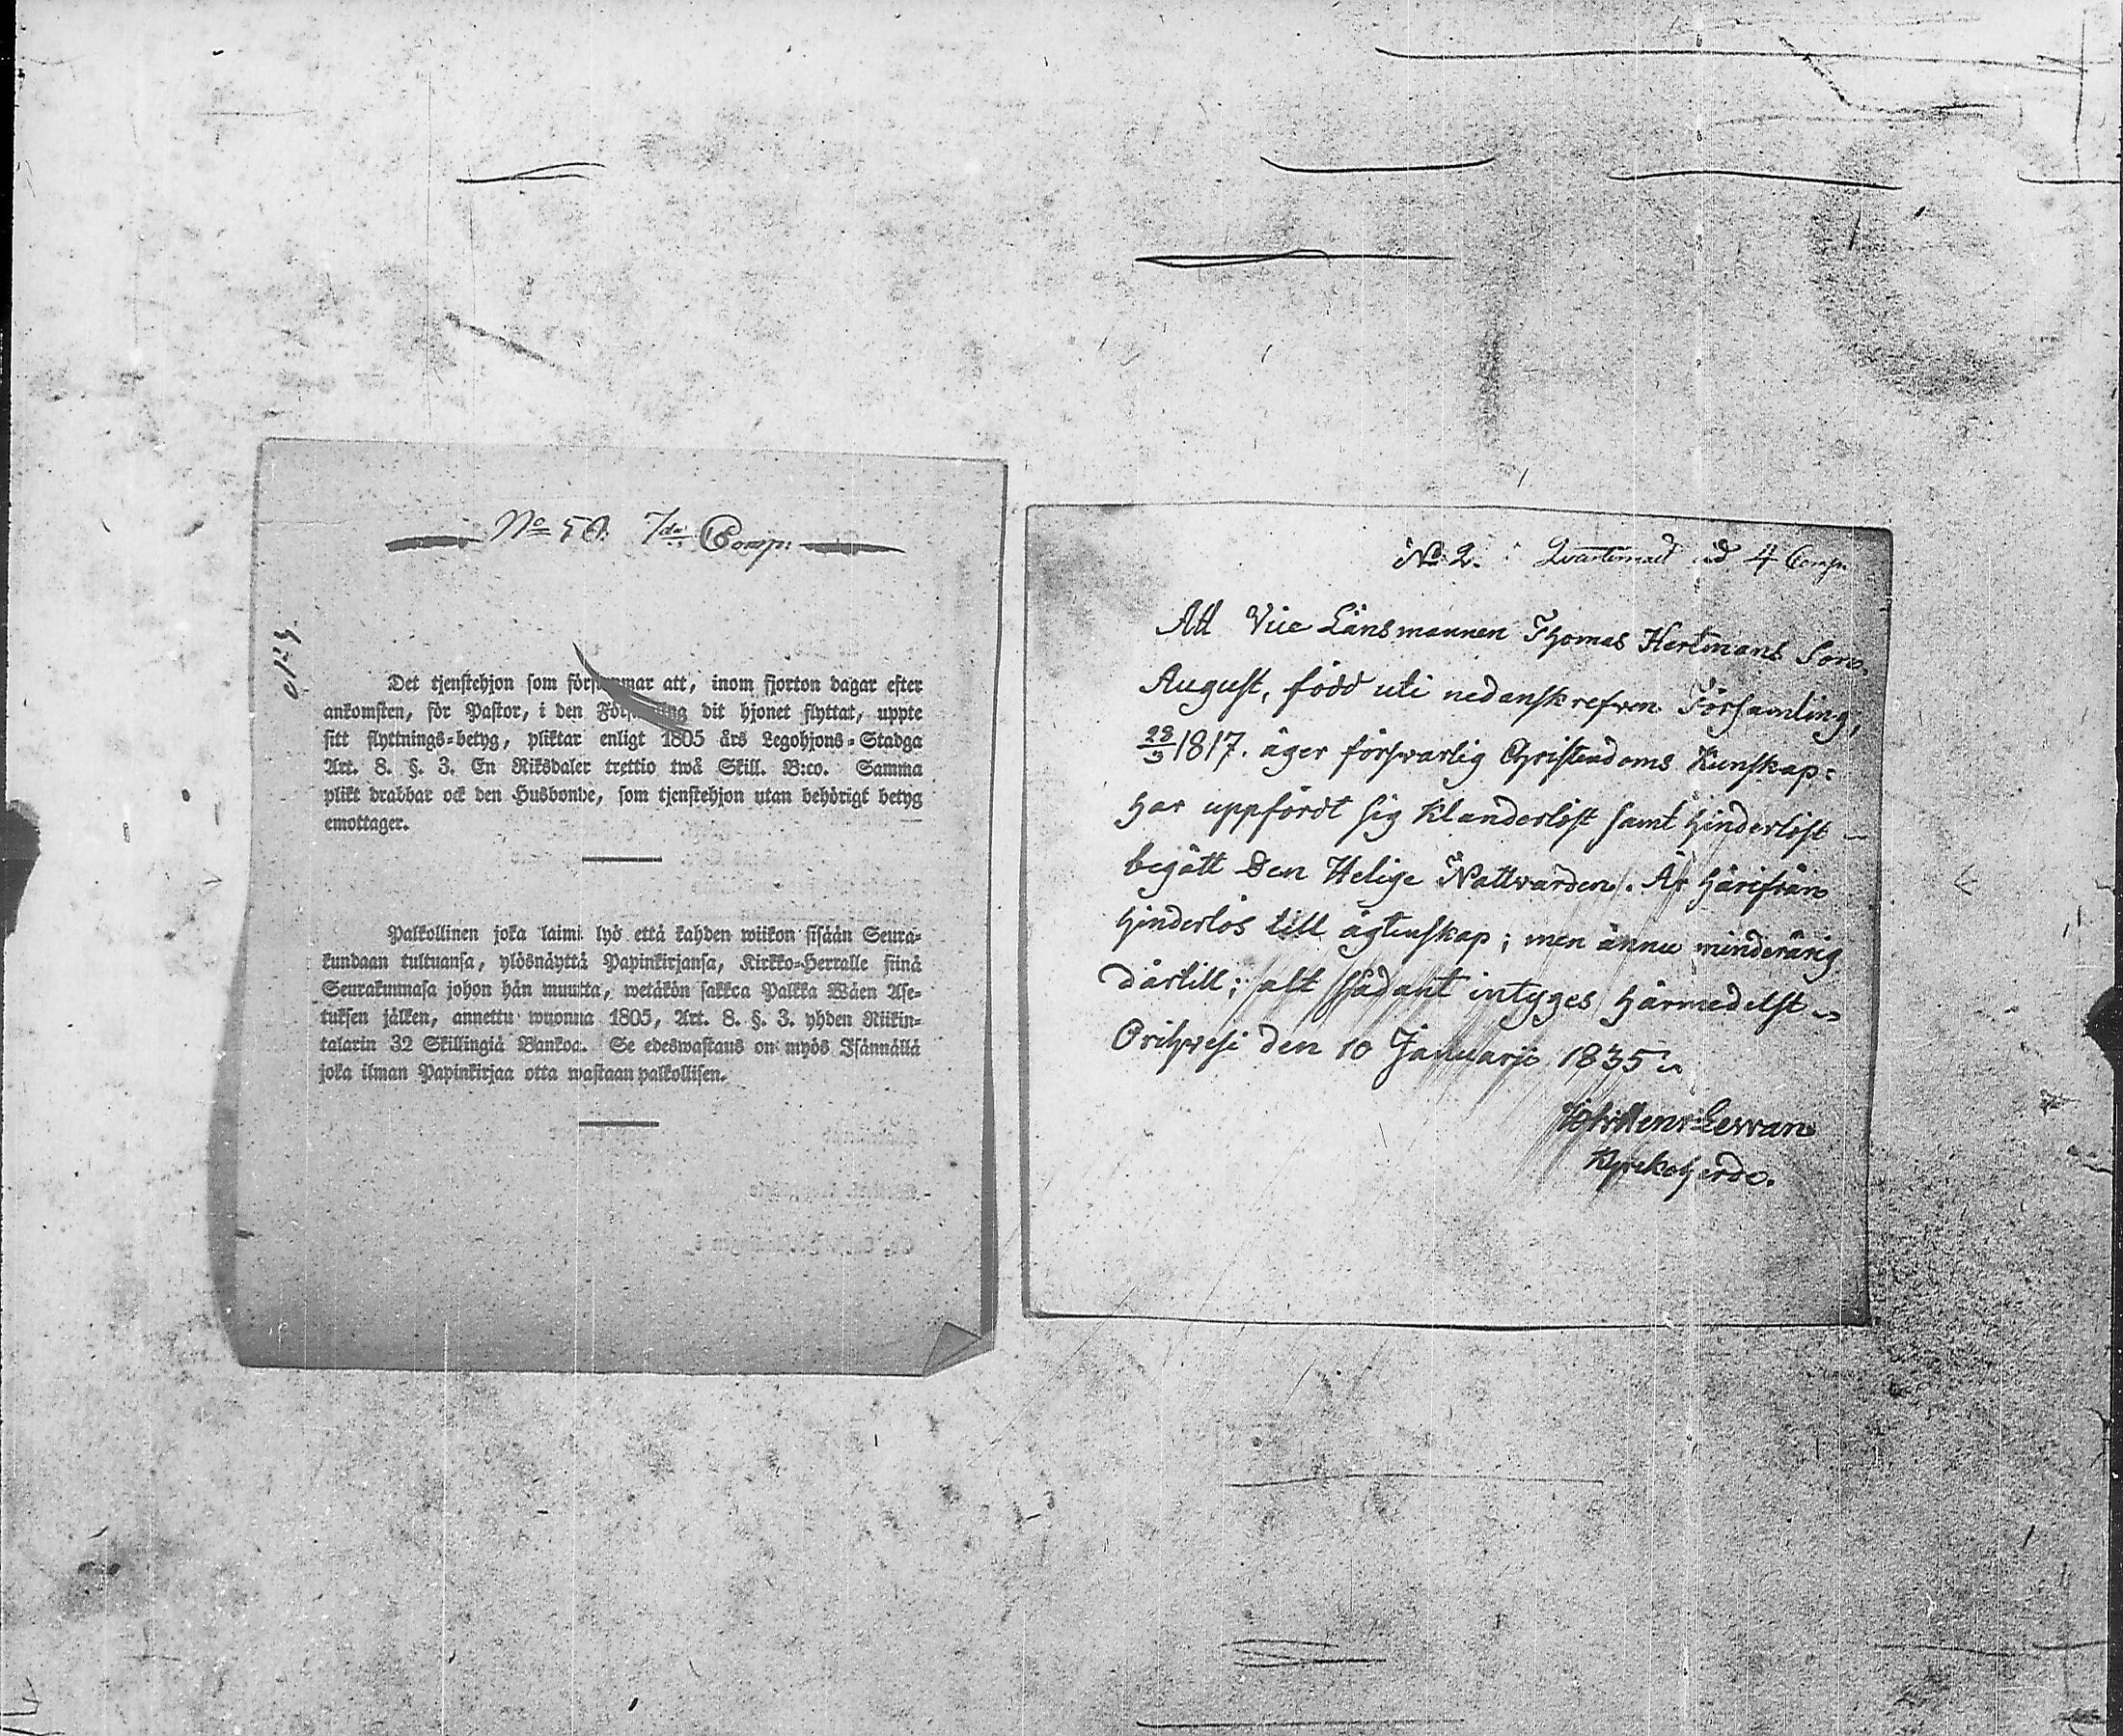 No 50. 7de Comp:
Det tjenstehjon som försummar att, inom fjorton dagar efter
ankomsten, för Pastor, i den Församling dit hjonet flyttat, uppte
sitt flyttnings-betyg, pliktar enligt 1805 års Legohjons-Stadga
Art. 8. §. 3. En Riksdaler trettio twå Skill. B:co. Samma
plikt drabbar ock den Husbonde, som tjenstehjon utan behörigt betyg
emottager.
Palkollinen joka laimi lyö että kahden wiikon sisään Seura-
kundaan tultuansa, ylösnäyttä Papinkirjansa, Kirkko-Herralle siinä
Seurakunnasa johon hän muutta, wetäkön sakkoa Palkka Wäen Ase-
tuksen jälken, annettu wuonna 1805, Art. 8. §. 3. yhden Riikin-
talarin 32 Skillingiä Bankoa. Se edeswastaus on myös Isännällä
joka ilman Papinkirjaa otta wastaan palkollisen.
No 2. 4 Comp.
Att Vice Länsmannen Thomas Hertmans Son
August, född uti nedanskrefven Församling,
28/3 1817. äger försvarlig Christendoms Kunskap:
har uppfördt sig Klanderlöst samt hinderlöst
begått Den Helige Nattvarden. Är härifrån
hinderlös till ägtenskap; men ännu minderårig
därtill; alt sådant intyges härmedelst
Orihvesi den 10 Januarii 1835
Kyrkoherde.